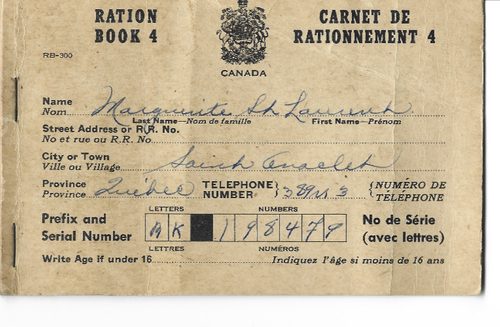 RATION CARNET DE
BOOK 4 RATIONNEMENT 4
RB-300
CANADA
Name Marguerite St Laurent
Nom Last Name—Nom de famille First Name—Prénom
Street Address or R.R. No.
No et rue ou R.R. No.
City or Town Saint Anaclet
Ville ou Village
Province Québec TELEPHONE NUMÉRO DE
Province NUMBER TÉLÉPHONE
LETTERS NUMBERS
Prefix and No de Série
Serial Number MK 198479 (avec lettres)
LETTRES NUMÉROS
Write Age if under 16 Indiquez l'âge si moins de 16 ans